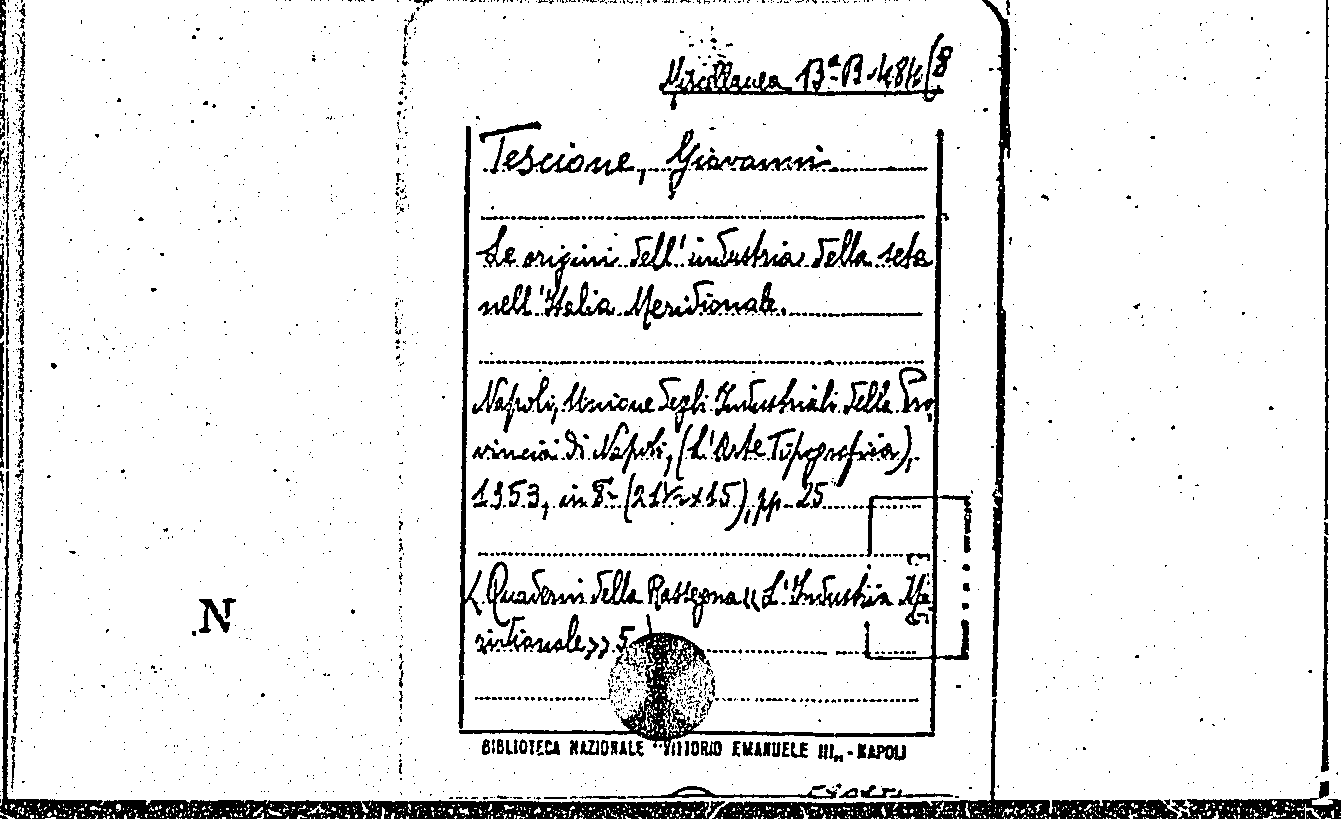 Miscellanea Bª B. 484/8
Tescione, Giovanni
Le origini dell'industria della seta
nell'Italia Meridionale.
Napoli, Unione degli Industriali della Pro
vincia di Napoli, (L'Arte Tipografica),
1953, in 8º (21½x15), pp. 25
(Quaderni della Rassegna "L'Industria Me
ridionale" 5
N
BIBLIOTECA NAZIONALE "VITTORIO EMANUELE III„ - NAPOLI